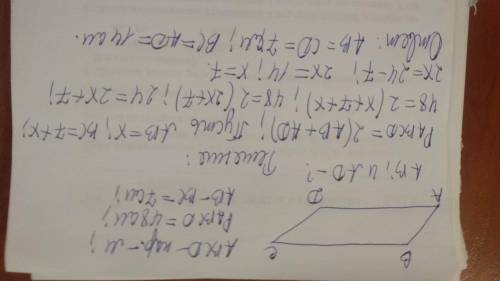 B C
A D
ABCD - пар-м;
PABCD = 48 см;
AB - BC = 7 см;
AB; и AD - ?
Решение:
PABCD = 2(AB + AD); Пусть AB = x; BC = 7 + x
48 = 2(x + 7 + x); 48 = 2(2x + 7); 24 = 2x + 7;
2x = 24 - 7; 2x = 14; x = 7.
Ответ: AB = CD = 7 см; BC = AD = 14 см.